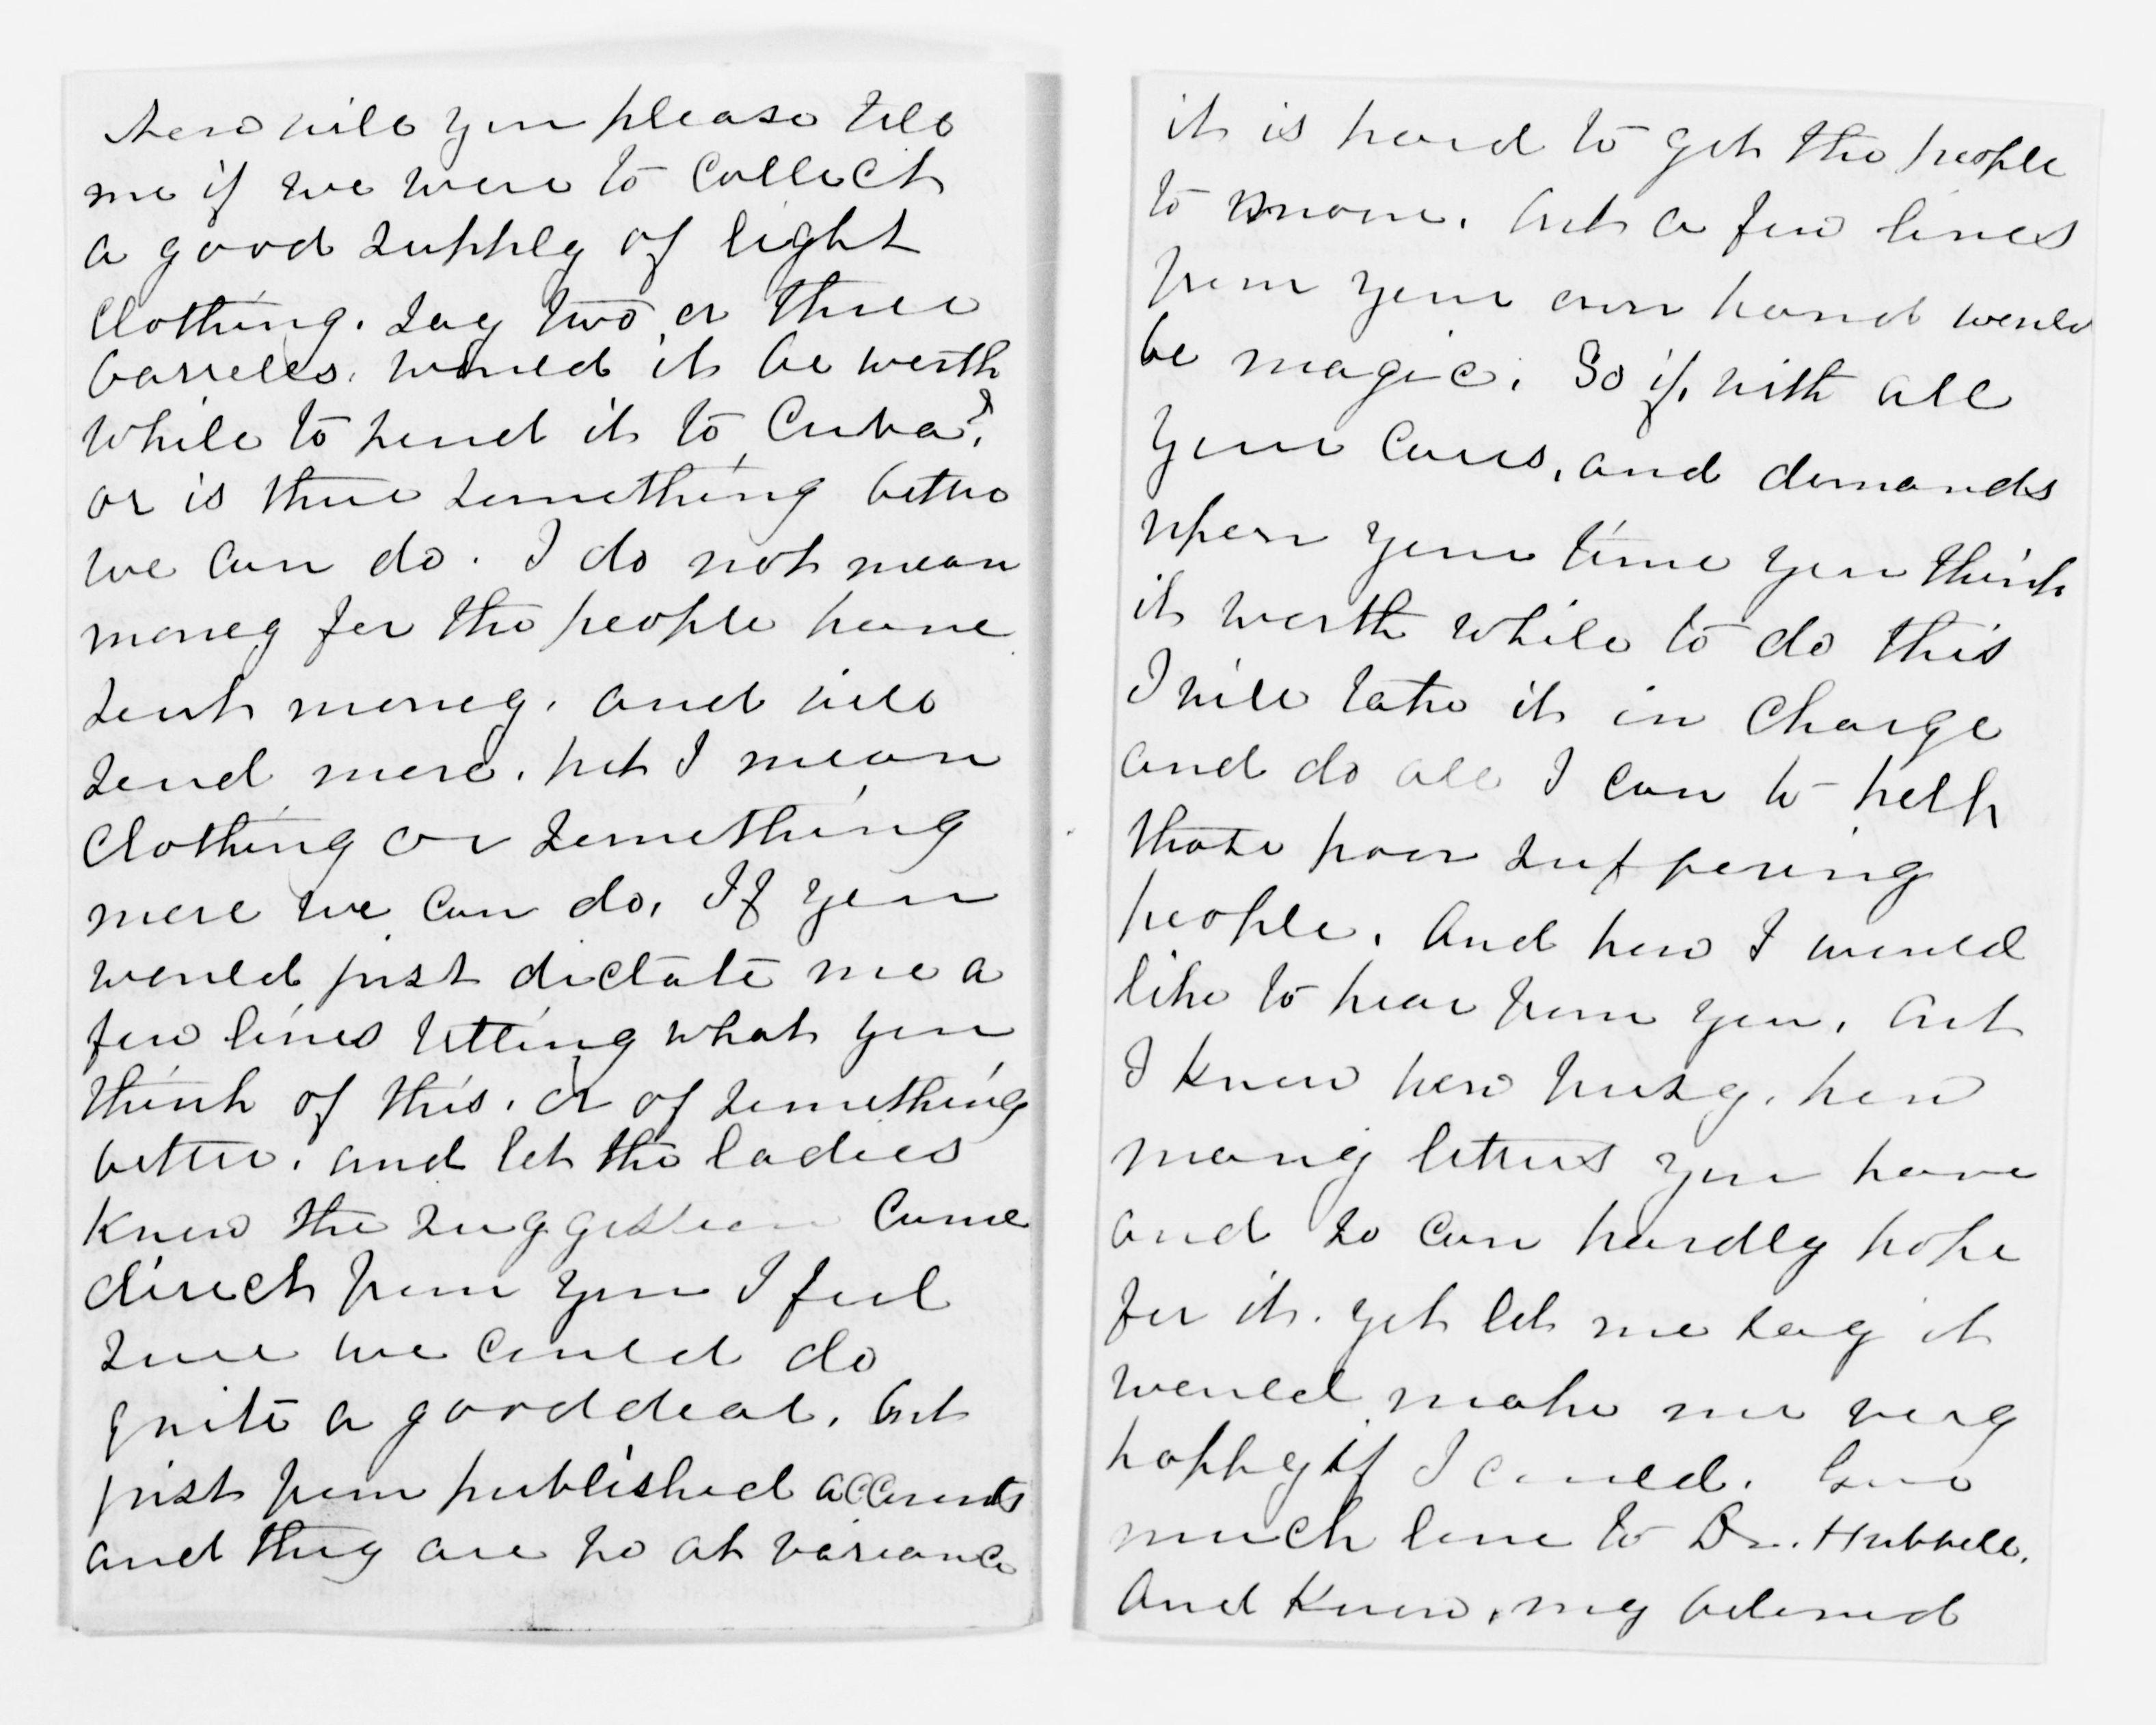 Now will you please tell
me if we were to collect
a good supply of light
clothing. Say two or three
barrells, would it be worth
while to send it to Cuba?
or is there something better
we can do. I do not mean
money for the people have
sent money, and will
send more, but I mean
clothing or something
more we can do. If you
would just dictate me a
few lines telling what you
think of this, or of something
better, and let the ladies
know the suggestion came
direct from you I feel
sure we could do
quite a good deal, but
just from published accounts
and they are so at variance
it is hard to get the people
to move. but a few lines
from your own hand would
be magic. So if, with all
your cares, and demands
upon your time you think
it worth while to do this
I will take it in charge
and do all I can to help
those poor suffering
people. And how I would
like to hear from you, but
I know how busy, how
many letters you have
and so can hardly hope
for it. yet let me say it
would make me very
happy if I could. Give
much love to Dr. Hubbell.
And know, my beloved